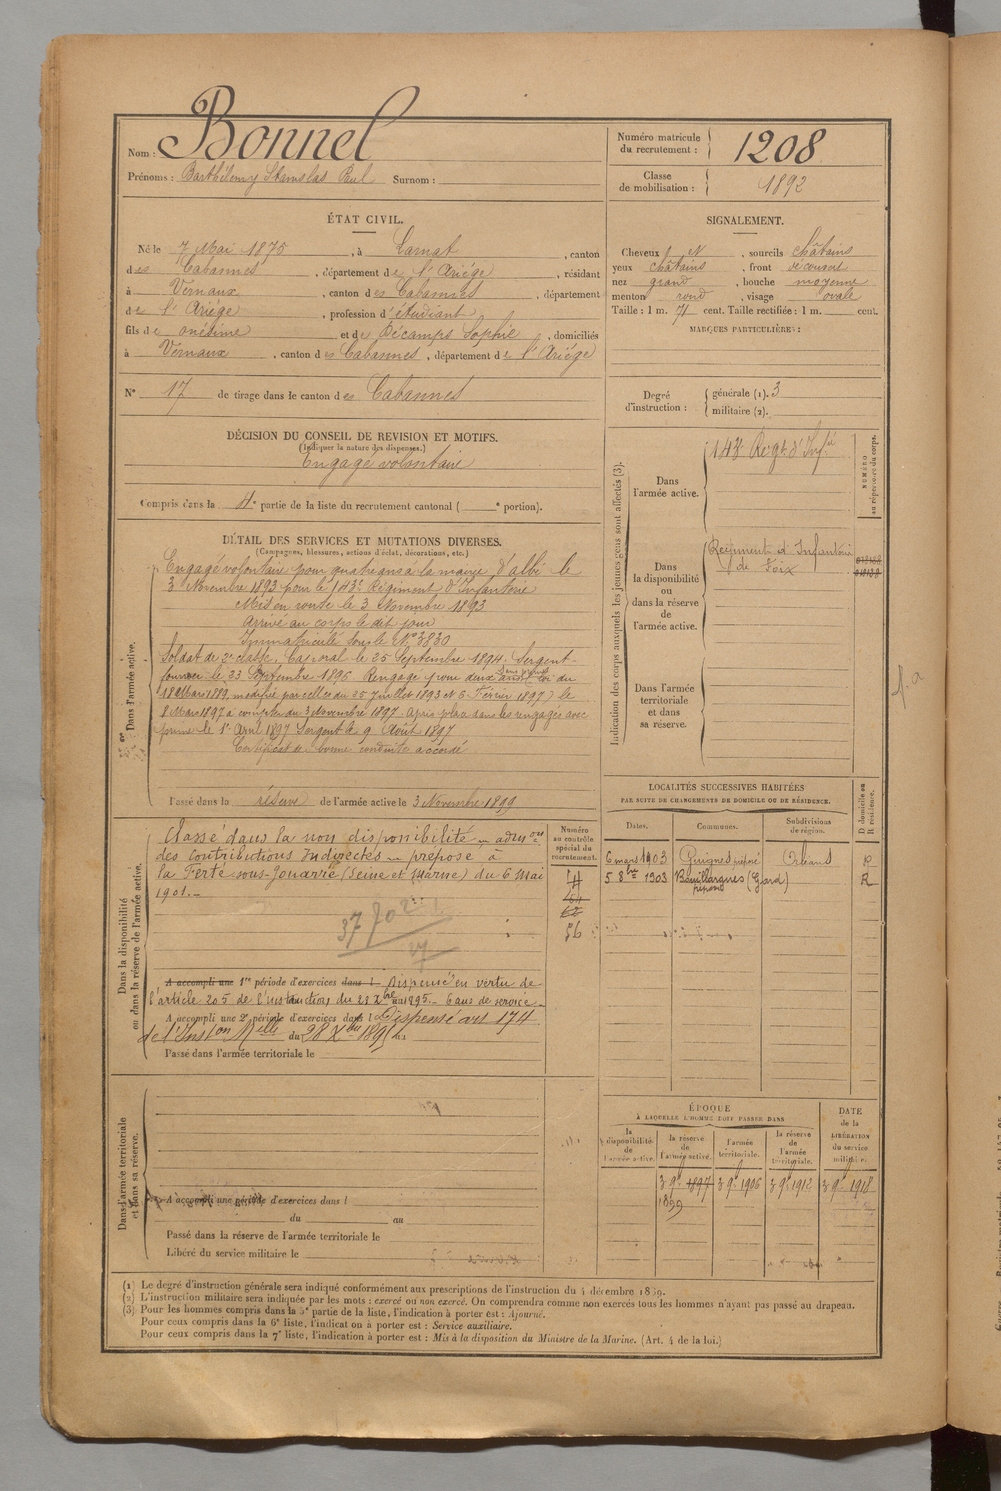 Nom : Bonnel
Prénoms : Barthélemy Stanislas Paul Surnom :
Numéro matricule du recrutement : 1208
Classe de mobilisation : 1892
ÉTAT CIVIL.
Né le 7 Mai 1875, à Larnat, canton
des Cabannes, département de l'Ariége, résidant
à Vernaux, canton des Cabannes, département
de l'Ariége, profession d'étudiant
fils de onésime et de Décamps Sophie, domiciliés
à Vernaux, canton des Cabannes, département de l'Ariége
SIGNALEMENT.
Cheveux et, sourcils châtains
yeux châtains, front découvert
nez grand, bouche moyenne
menton rond, visage ovale
Taille : 1 m. 71 cent. Taille rectifiée : 1 m. cent.
MARQUES PARTICULIÈRES :
N° 17 de tirage dans le canton des Cabannes
Degré d'instruction : générale (1). 3
militaire (2).
DÉCISION DU CONSEIL DE REVISION ET MOTIFS.
(Indiquer la nature des dispenses.)
Engagé volontaire
Compris dans la 4e partie de la liste du recrutement cantonal ( e portion).
DÉTAIL DES SERVICES ET MUTATIONS DIVERSES.
(Campagnes, blessures, actions d'éclat, décorations, etc.)
Dans l'armée active.
Engagé volontaire pour quatre ans à la mairie d'albi le
3 Novembre 1893 pour le 143e Régiment d'Infanterie
Mis en route le 3 Novembre 1893
Arrivé au corps le dit jour
Immatriculé sous le N° 3830
Soldat de 2e classe. Caporal le 25 Septembre 1894. Sergent-
fourrier le 23 Septembre 1896. Rengagé pour deux ans (loi du
18 Mars 1889, modifié par celles du 25 Juillet 1893 et 5 Février 1897) le
8 Mars 1897 à compter du 3 Novembre 1897. Après placé dans les rengagés avec
prime le 1er Avril 1897 Sergent le 9 Août 1897
Certificat de bonne conduite accordé
Passé dans la réserve de l'armée active le 3 Novembre 1899
Indication des corps auxquels les jeunes gens sont affectés (3).
NUMÉRO au répertoire du corps.
Dans l'armée active.
143e Régt d'Infie
Dans la disponibilité ou dans la réserve de l'armée active.
Régiment d'Infanterie
de Foix
Dans l'armée territoriale et dans sa réserve.
Dans la disponibilité ou dans la réserve de l'armée active.
Classé dans la non disponibilité – admon
des contributions Indirectes – préposé à
la Ferté-sous-Jouarre (Seine et Marne) du 6 Mai
1901. –
Numéro au contrôle spécial du recrutement.
56
A accompli une 1re période d'exercices dans l Dispensé en vertu de
l'article 205 de l'instruction du 28 Xbre 1895. – 6 ans de service –
A accompli une 2e période d'exercices dans l Dispensé art 174
de l'Inston Mlle du 28 Xbre 1895
Passé dans l'armée territoriale le
LOCALITÉS SUCCESSIVES HABITÉES
PAR SUITE DE CHANGEMENTS DE DOMICILE OU DE RÉSIDENCE.
Dates. Communes. Subdivisions de région. D domicile ou R résidence.
6 mars 1903 Guignes préposé Orléans R
5 8bre 1903 Bouillargues (Gard) R
préposé
Dans l'armée territoriale et dans sa réserve.
A accompli une période d'exercices dans l
du au
Passé dans la réserve de l'armée territoriale le
Libéré du service militaire le
ÉPOQUE
À LAQUELLE L'HOMME DOIT PASSER DANS
la disponibilité de l'armée active.
la réserve de l'armée active.
l'armée territoriale.
la réserve de l'armée territoriale.
DATE de la LIBÉRATION du service militaire.
3 9bre 1897 3 9bre 1906 3 9bre 1912 3 9bre 1918
1899
(1) Le degré d'instruction générale sera indiqué conformément aux prescriptions de l'instruction du 4 décembre 1889.
(2) L'instruction militaire sera indiquée par les mots : exercé ou non exercé. On comprendra comme non exercés tous les hommes n'ayant pas passé au drapeau.
(3) Pour les hommes compris dans la 5e partie de la liste, l'indication à porter est : Ajourné.
Pour ceux compris dans la 6e liste, l'indication à porter est : Service auxiliaire.
Pour ceux compris dans la 7e liste, l'indication à porter est : Mis à la disposition du Ministre de la Marine. (Art. 4 de la loi.)